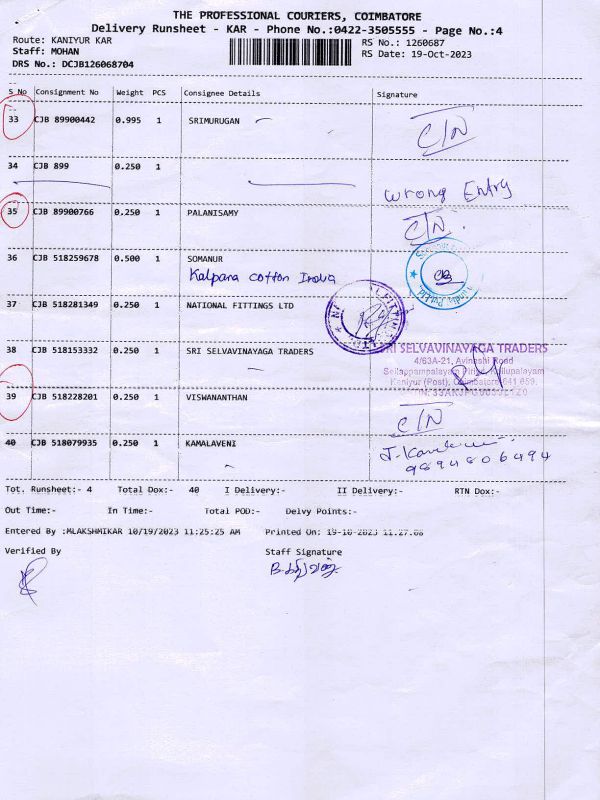 THE PROFESSIONAL COURIERS, COIMBATORE
Delivery Runsheet - KAR - Phone No.:0422-3505555 - Page No.:4
Route: KANIYUR KAR RS No.: 1260687
Staff: MOHAN RS Date: 19-Oct-2023
DRS No.: DCJB126068704
S No Consignment No Weight PCS Consignee Details Signature
33 CJB 89900442 0.995 1 SRIMURUGAN C/N
34 CJB 899 0.250 1
Wrong Entry
35 CJB 89900766 0.250 1 PALANISAMY C/N.
36 CJB 518259678 0.500 1 SOMANUR
Kalpana cotton India
37 CJB 518281349 0.250 1 NATIONAL FITTINGS LTD
38 CJB 518153332 0.250 1 SRI SELVAVINAYAGA TRADERS
SRI SELVAVINAYAGA TRADERS
4/63A-21, Avinashi Road
Sellappampalayam Pirivu, Kollupalayam
Kaniyur (Post), Coimbatore-641 659.
39 CJB 518228201 0.250 1 VISWANANTHAN C/N
40 CJB 518079935 0.250 1 KAMALAVENI
9894806494
Tot. Runsheet:- 4 Total Dox:- 40 I Delivery:- II Delivery:- RTN Dox:-
Out Time:- In Time:- Total POD:- Delvy Points:-
Entered By :MLAKSHMIKAR 10/19/2023 11:25:25 AM Printed On: 19-10-2023 11.27.08
Verified By Staff Signature